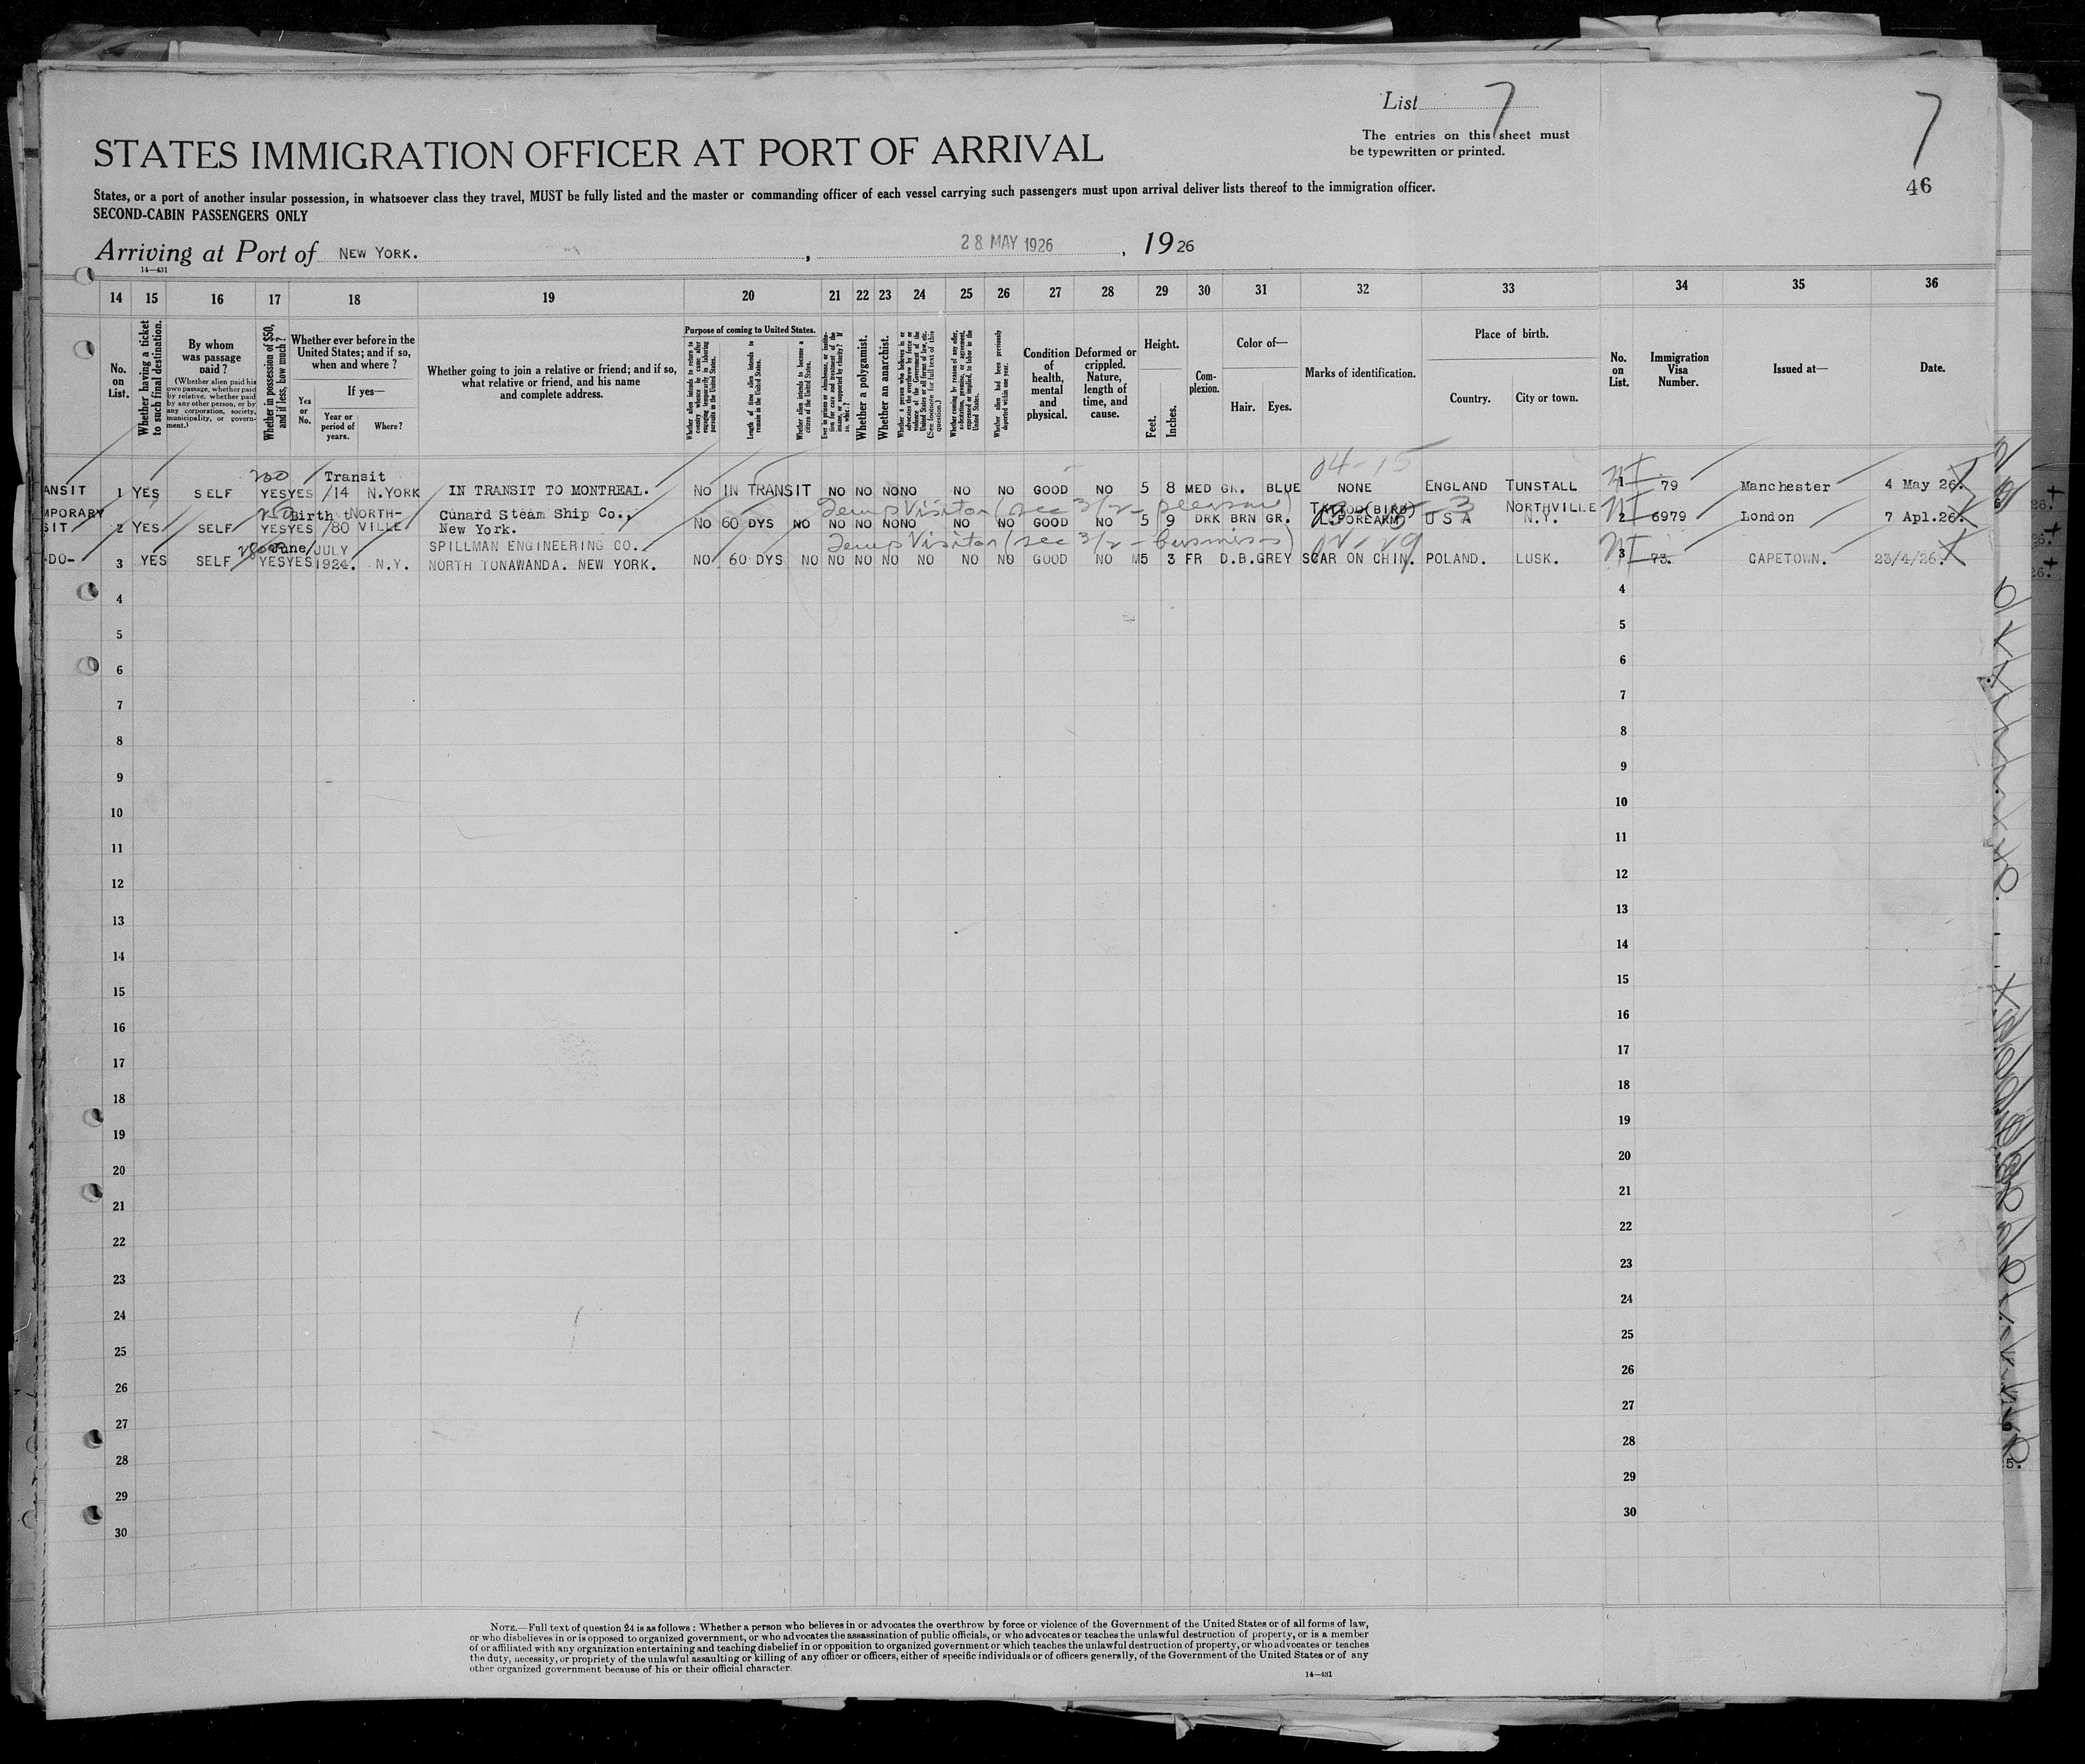 List 7
7
The entries on this sheet must
be typewritten or printed.
46
STATES IMMIGRATION OFFICER AT PORT OF ARRIVAL
States, or a port of another insular possession, in whatsoever class they travel, MUST be fully listed and the master or commanding officer of each vessel carrying such passengers must upon arrival deliver lists thereof to the immigration officer.
SECOND-CABIN PASSENGERS ONLY
Arriving at Port of NEW YORK. , 28 MAY 1926 , 1926
14—431
14 15 16 17 18 19 20 21 22 23 24 25 26 27 28 29 30 31 32 33 34 35 36
No. on List.
Whether having a ticket to such final destination.
By whom was passage paid?
(Whether alien paid his own passage, whether paid by relative, whether paid by any other person, or by any corporation, society, municipality, or government.)
Whether in possession of $50, and if less, how much?
Whether ever before in the United States; and if so, when and where?
If yes—
Yes or No.
Year or period of years.
Where?
Whether going to join a relative or friend; and if so, what relative or friend, and his name and complete address.
Purpose of coming to United States.
Whether alien intends to return to country whence he came after engaging temporarily in laboring pursuits in the United States.
Length of time alien intends to remain in the United States.
Whether alien intends to become a citizen of the United States.
Ever in prison or almshouse, or institution for care and treatment of the insane, or supported by charity? If so, which?
Whether a polygamist.
Whether an anarchist.
Whether a person who believes in or advocates the overthrow by force or violence of the Government of the United States or all forms of law, etc. (See footnote for full text of this question.)
Whether coming by reason of any offer, solicitation, promise, or agreement, expressed or implied, to labor in the United States.
Whether alien had been previously deported within one year.
Condition of health, mental and physical.
Deformed or crippled. Nature, length of time, and cause.
Height.
Feet. Inches.
Complexion.
Color of—
Hair. Eyes.
Marks of identification.
Place of birth.
Country. City or town.
No. on List.
Immigration Visa Number.
Issued at—
Date.
200 Transit 04-15
ANSIT 1 YES SELF YES YES /14 N.YORK IN TRANSIT TO MONTREAL. NO IN TRANSIT NO NO NO NO NO NO GOOD NO 5 8 MED GR. BLUE NONE ENGLAND TUNSTALL 1 79 Manchester 4 May 26.
MPORARY 250 Birth t NORTH- Cunard Steam Ship Co., Temp Visitor (sec 3/2 - pleasure) TATTOO(BIRD) NORTHVILLE
SIT 2 YES SELF YES YES /80 VILLE New York. NO 60 DYS NO NO NO NO NO NO NO GOOD NO 5 9 DRK BRN GR. L.FOREARM U S A N.Y. 2 6979 London 7 Apl.26.
June/JULY SPILLMAN ENGINEERING CO. Temp Visitor (sec 3/2 - business)
-DO- 3 YES SELF YES YES 1924. N.Y. NORTH TONAWANDA. NEW YORK. NO 60 DYS NO NO NO NO NO NO NO GOOD NO M5 3 FR D.B. GREY SCAR ON CHIN. POLAND. LUSK. 3 73. CAPETOWN. 23/4/26.
4 4
5 5
6 6
7 7
8 8
9 9
10 10
11 11
12 12
13 13
14 14
15 15
16 16
17 17
18 18
19 19
20 20
21 21
22 22
23 23
24 24
25 25
26 26
27 27
28 28
29 29
30 30
NOTE.—Full text of question 24 is as follows: Whether a person who believes in or advocates the overthrow by force or violence of the Government of the United States or of all forms of law,
or who disbelieves in or is opposed to organized government, or who advocates the assassination of public officials, or who advocates or teaches the unlawful destruction of property, or is a member
of or affiliated with any organization entertaining and teaching disbelief in or opposition to organized government or which teaches the unlawful destruction of property, or who advocates or teaches
the duty, necessity, or propriety of the unlawful assaulting or killing of any officer or officers, either of specific individuals or of officers generally, of the Government of the United States or of any
other organized government because of his or their official character.
14—431